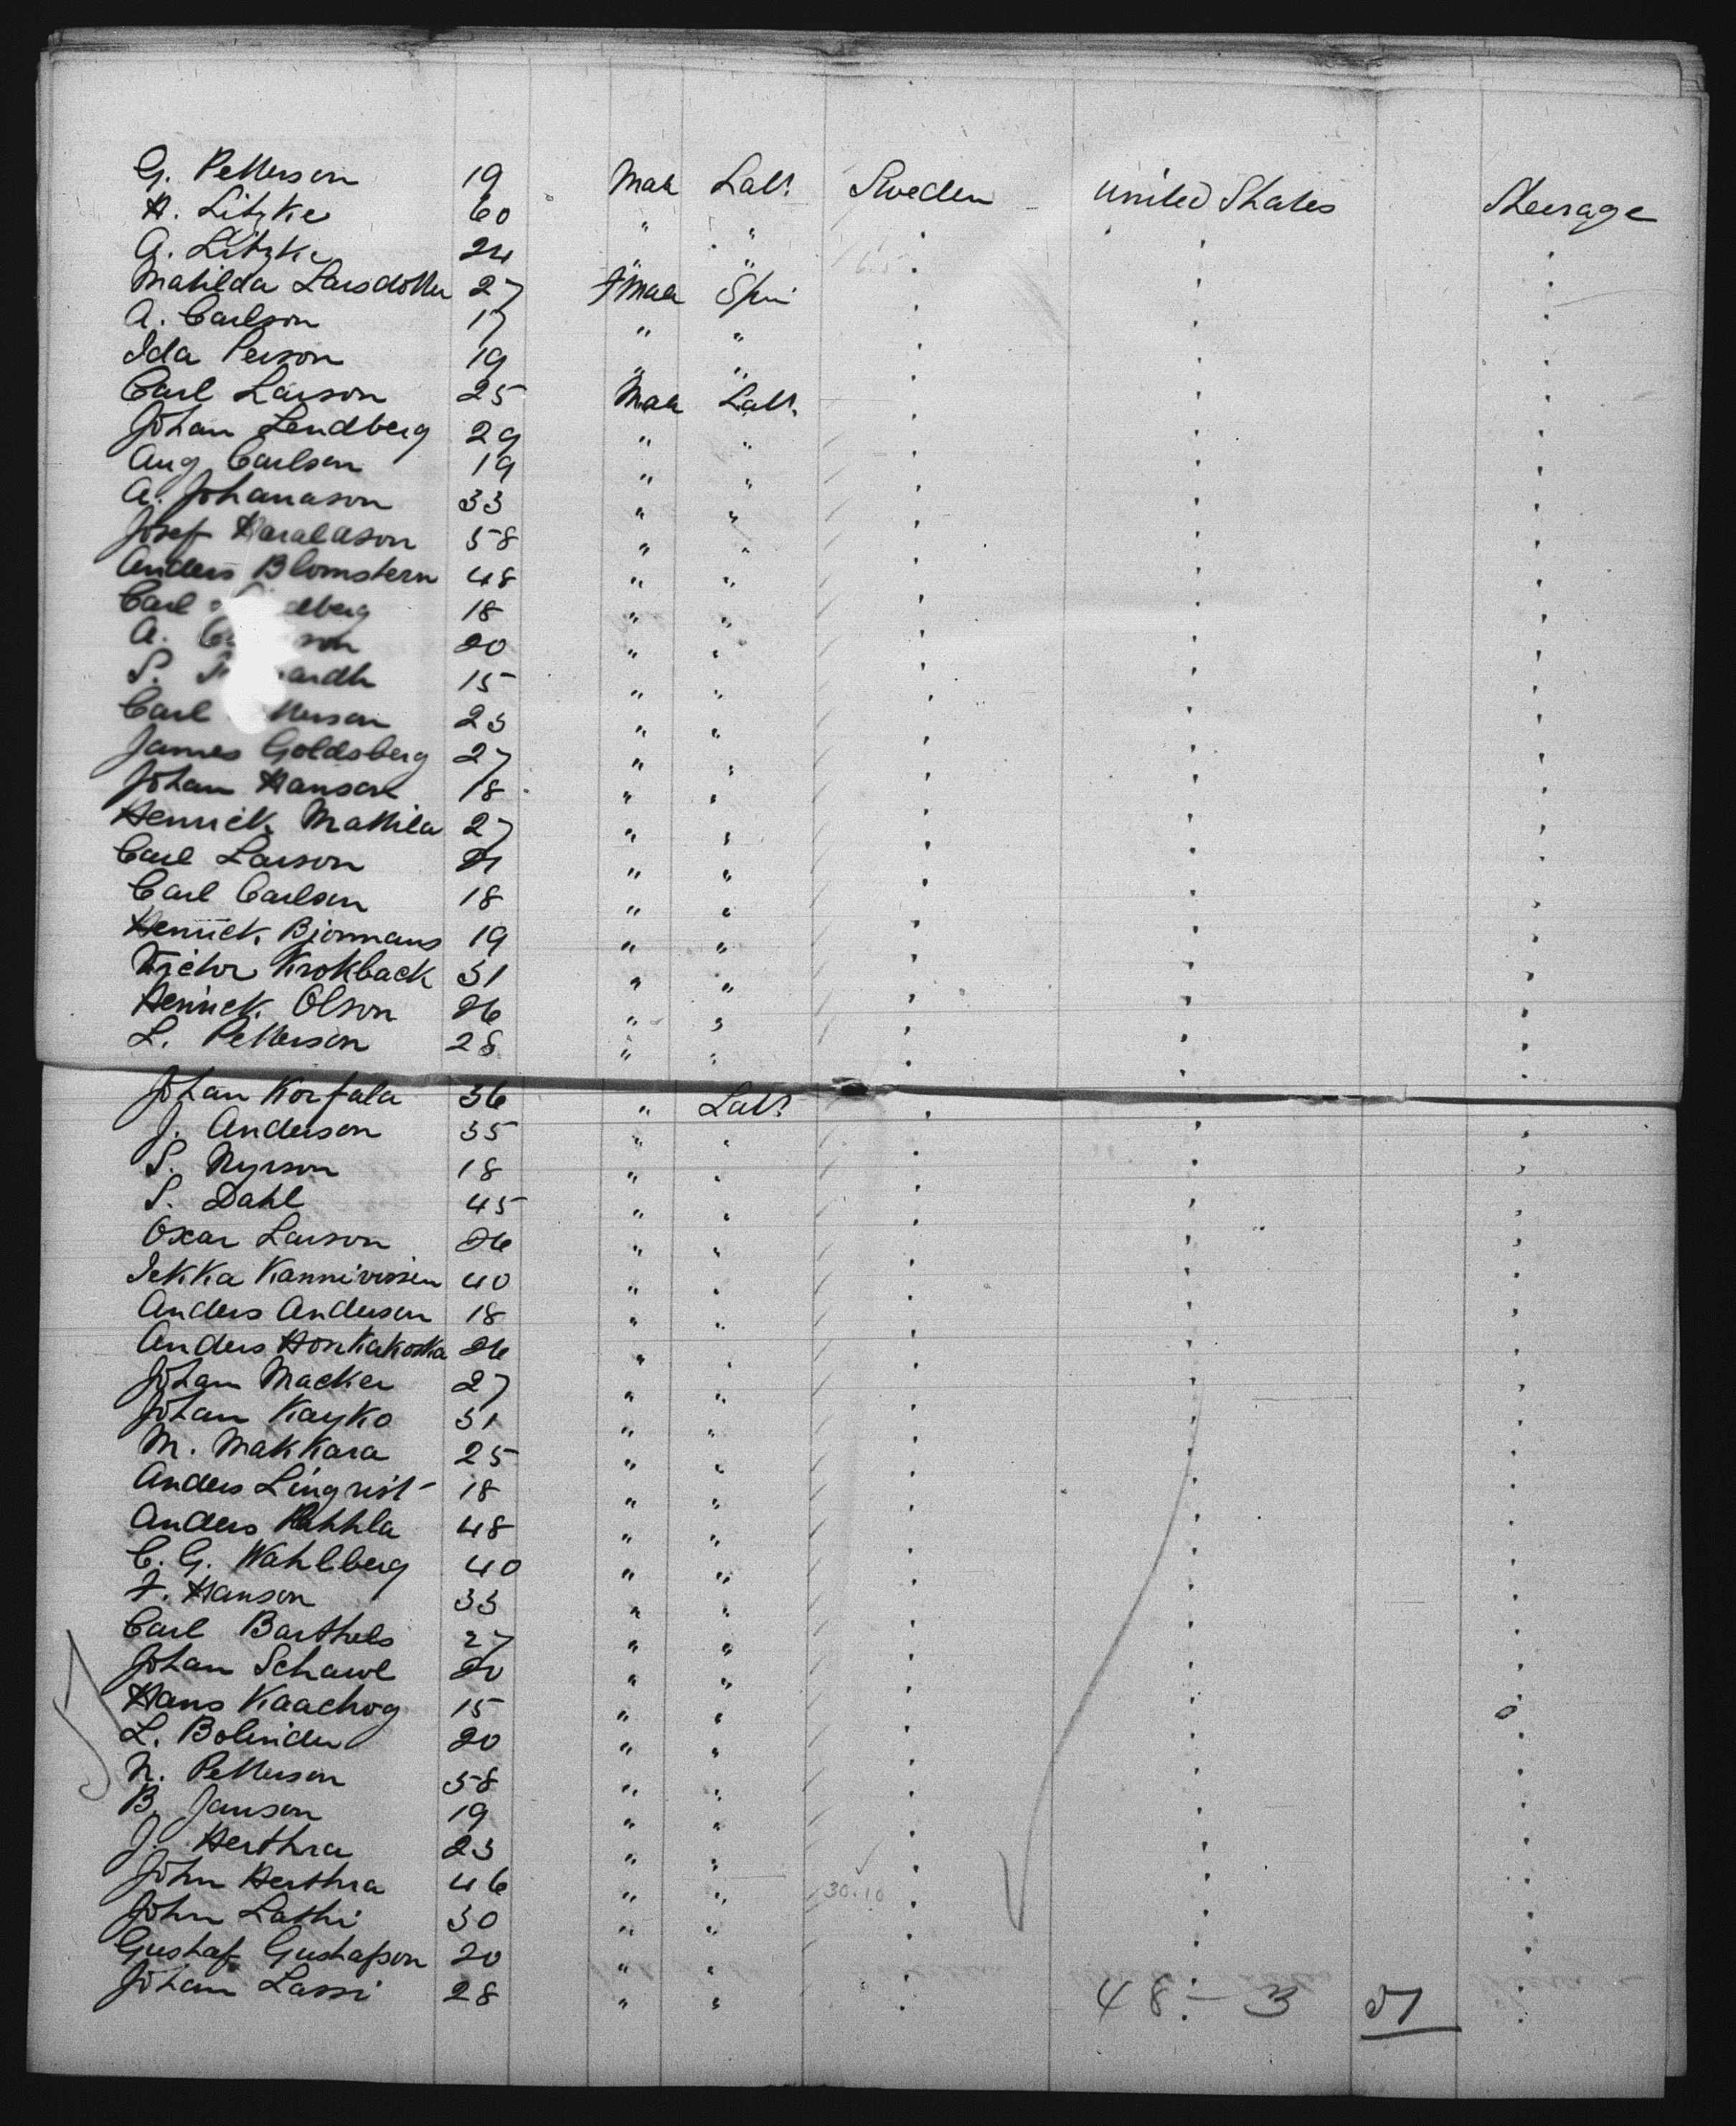 G. Petterson 19 Male Labr. Sweden United States Steerage
H. Litzke 60 " " " " "
A. Litzke 24 " " " " "
Matilda Larsdotter 27 Fmale Spin " " "
A. Carlson 17 " " " " "
Ida Person 19 " " " " "
Carl Larson 25 Male Labr. " " "
Johan Lendberg 29 " " " " "
Aug Carlson 19 " " " " "
A. Johanason 33 " " " " "
Josef Haralason 58 " " " " "
Anders Blomstern 48 " " " " "
Carl 18 " " " " "
A. 20 " " " " "
S. 15 " " " " "
Carl 23 " " " " "
James Goldsberg 27 " " " " "
Johan Hanson 18 " " " " "
Henrick Mattila 27 " " " " "
Carl Larson 21 " " " " "
Carl Carlson 18 " " " " "
Henrick Bjornmans 19 " " " " "
Victor Krokback 31 " " " " "
Henrick Olson 26 " " " " "
L. Petterson 28 " " " " "
Johan Korfala 36 " Labr " " "
J. Anderson 35 " " " " "
S. Nyrson 18 " " " " "
S. Dahl 45 " " " " "
Oxar Larson 26 " " " " "
Iekka 40 " " " " "
Anders Anderson 18 " " " " "
Anders Honkakoska 26 " " " " "
Johan Macker 27 " " " " "
Johan Kayko 31 " " " " "
M. Makkara 25 " " " " "
Anders Linqvist 18 " " " " "
Anders 48 " " " " "
C. G. Wahlberg 40 " " " " "
F. Hanson 33 " " " " "
Carl Barthels 27 " " " " "
Johan Schawl 20 " " " " "
Hans Kaachog 15 " " " " "
L. Bolinder 20 " " " " "
N. Petterson 58 " " " " "
B. Janson 19 " " " " "
J. Herthra 23 " " " " "
John Herthra 46 " " 30.10 " " "
John Lathi 30 " " " " "
Gustaf Gustafson 20 " " " " "
Johan Lassi 28 " " " " "
48 - 3 51